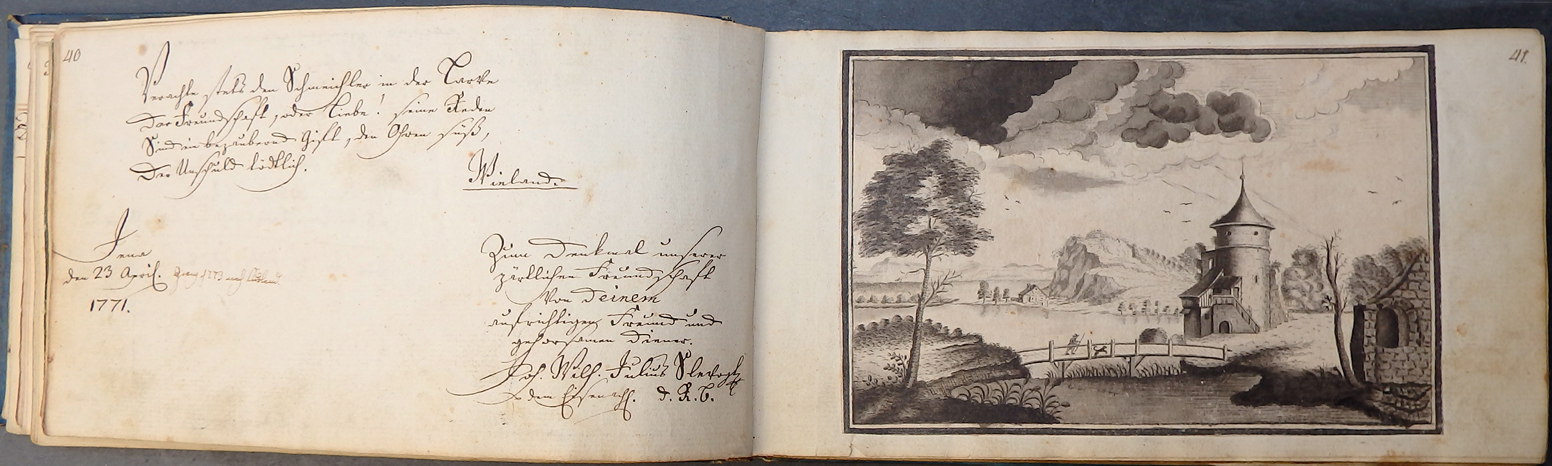 40
Verachte stets den Schmeichler in der Larve
Der Freundschaft, oder Liebe! seine Reden
Sind ein bezaubernd Gift, den Ohren süß,
Der Unschuld tödtlich.
Wieland.
Jena
den 23 April.
1771.
Zum Denkmal unserer
zärtlichen Freundschaft
von Deinem
aufrichtigen Freund und
gehorsamen Diener.
Joh. Wilh. Julius Slevogt
d. R. B.
41.